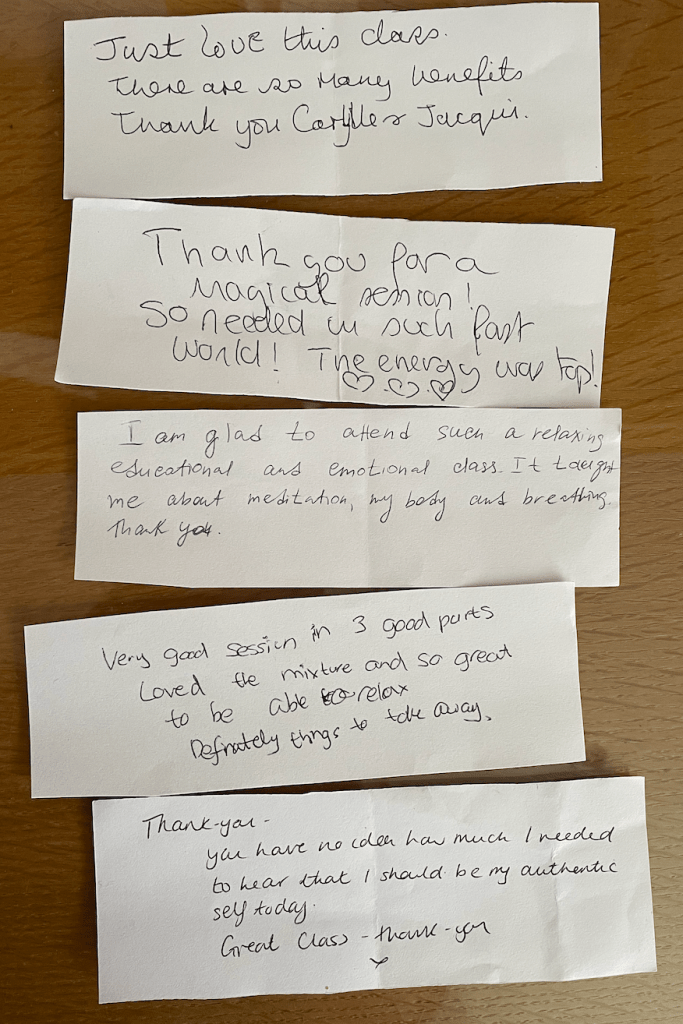 Just love this class.
There are so many benefits
Thank you & Jacqui.
Thank you for a
magical session!
So needed in such fast
world! The energy was top!
I am glad to attend such a relaxing
educational and emotional class. It taught
me about meditation, my body and breathing.
Thank you.
Very good session in 3 good parts
Loved the mixture and so great
to be able to relax
Definately things to take away.
Thank-you-
you have no idea how much I needed
to hear that I should be my authentic
self today.
Great Class - thank-you
x